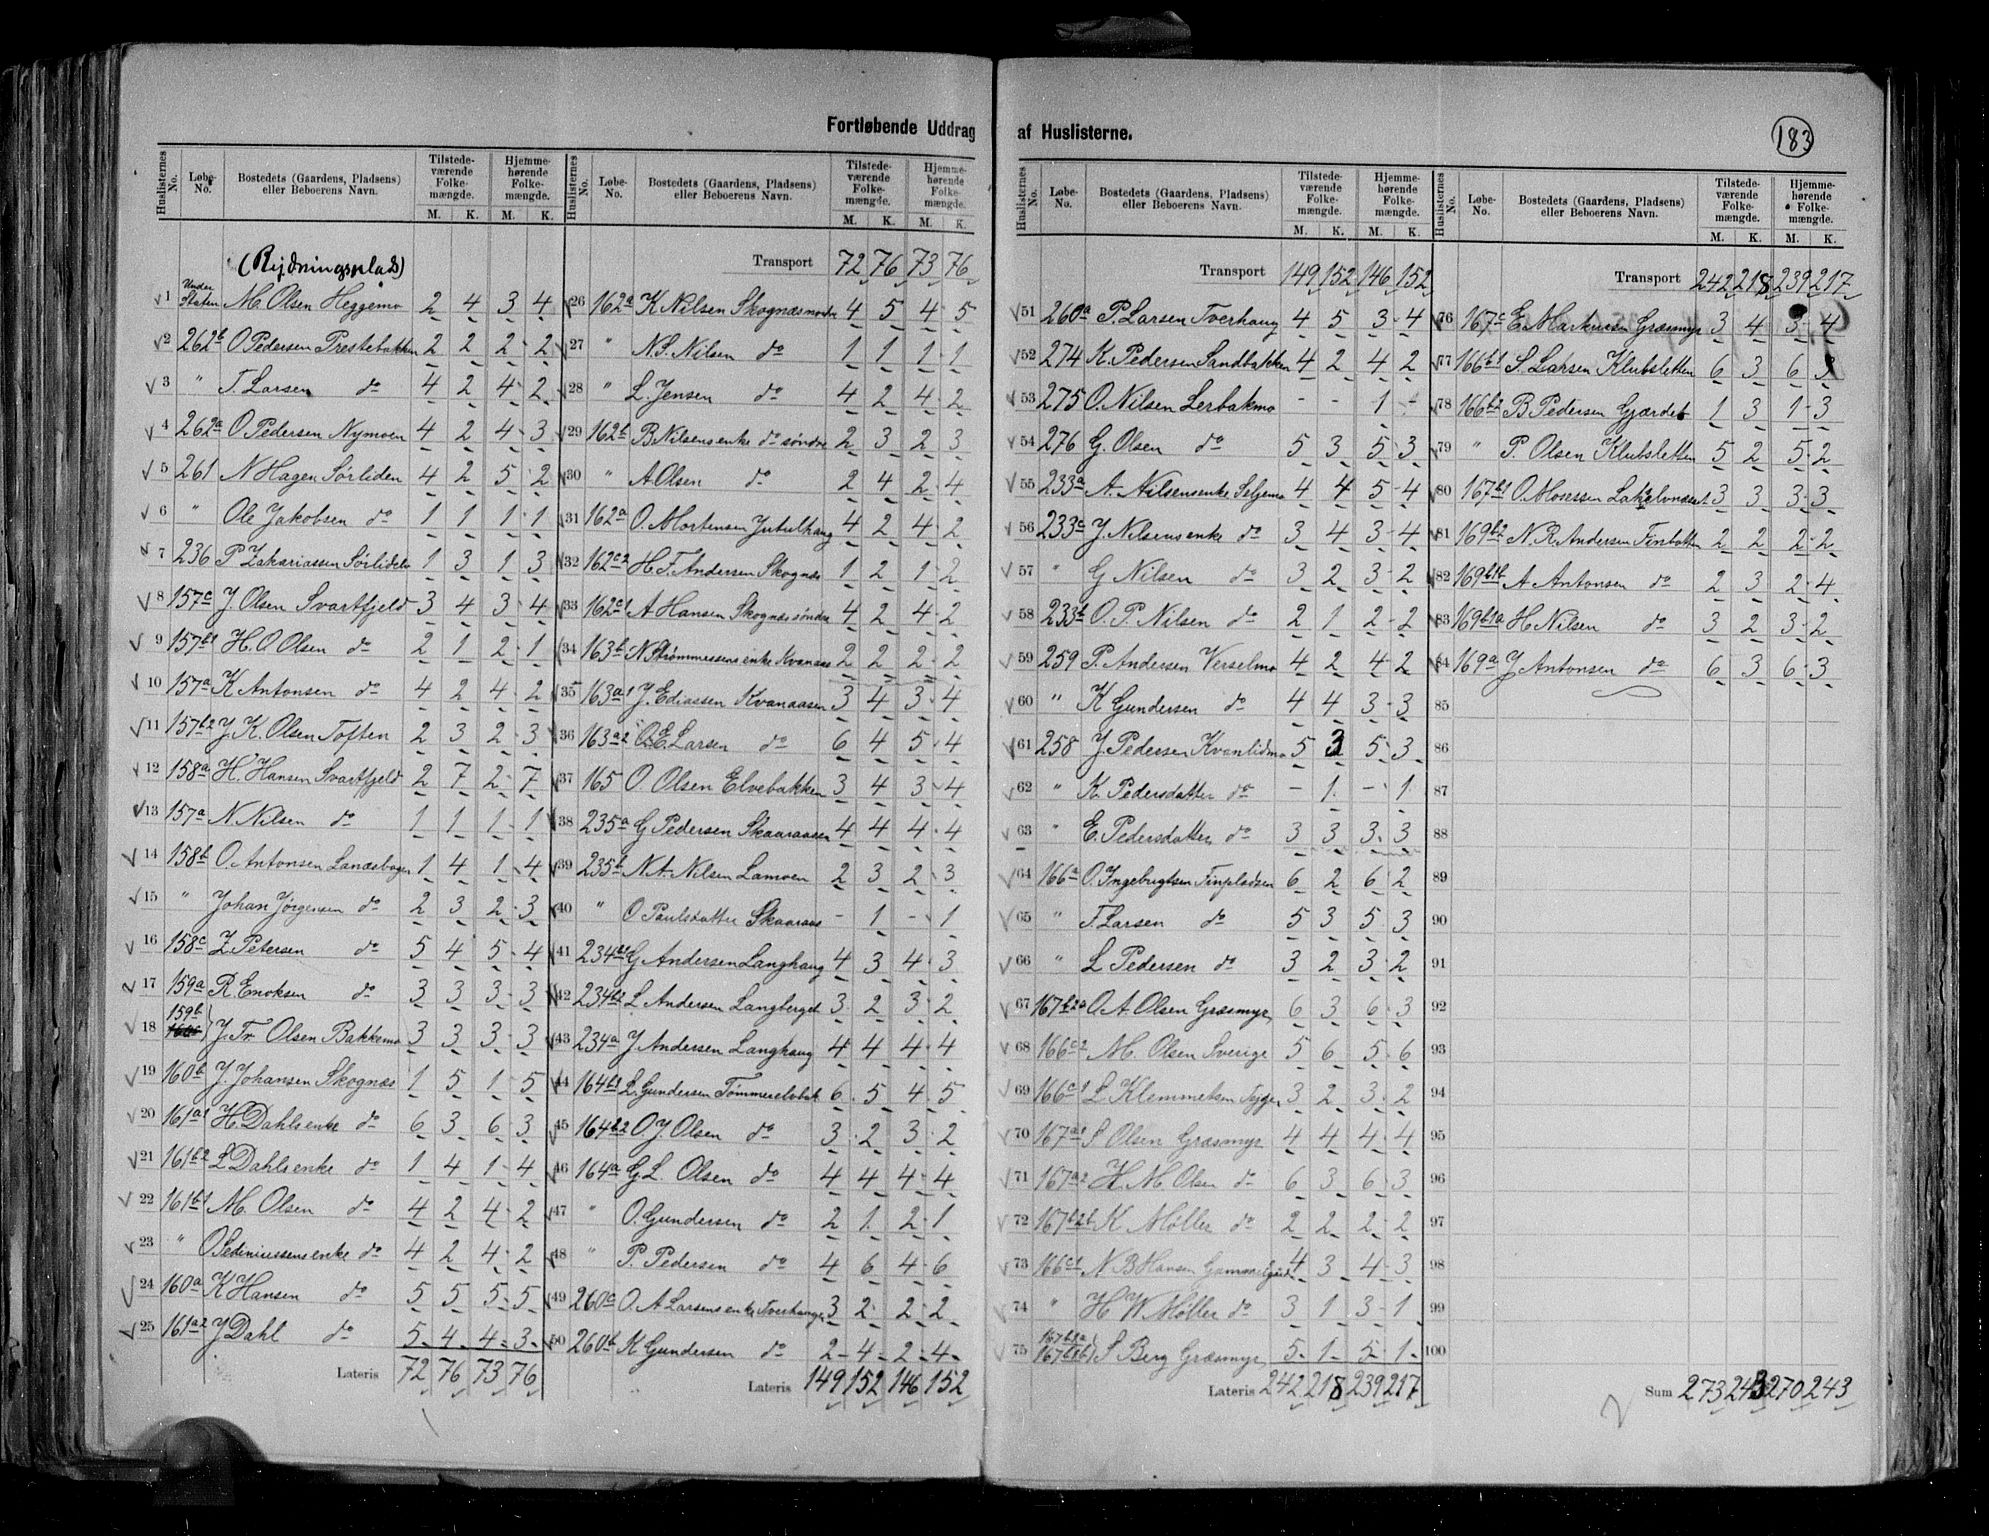 Fortløbende Uddrag af Huslisterne.
183
Huslisternes No. Løbe-No. Bostedets (Gaardens, Pladsens) eller Beboerens Navn. Tilstedeværende Folkemængde. M. K. Hjemmehørende Folkemængde. M. K.
(Rydningsplads)
1 Under Staten M. Olsen Heggemo 2 4 3 4
2 262b O Pedersen Prestebakken 2 2 2 2
3 " T. Larsen do 4 2 4 2
4 262a O Pedersen Nymoen 4 2 4 3
5 261 N Hagen Sørliden 4 2 5 2
6 " Ole Jakobsen do 1 1 1 1
7 236 P Zakariassen Sørliden 1 3 1 3
8 157c J Olsen Svartfjeld 3 4 3 4
9 157b1 H. O Olsen do 2 1 2 1
10 157a K Antonsen do 4 2 4 2
11 157b2 J K. Olsen Toften 2 3 2 3
12 158a H. Hansen Svartfjeld 2 7 2 7
13 157a N. Nilsen do 1 1 1 1
14 158b O. Antonsen 1 4 1 4
15 " Johan Jørgensen do 2 3 2 3
16 158c Z Petersen do 5 4 5 4
17 159a R. Enoksen do 3 3 3 3
18 159b J. Fr Olsen Bakkemo 3 3 3 3
19 160b J. Johansen Skognæs 1 5 1 5
20 161a1 H. Dahls enke do 6 3 6 3
21 161b2 L Dahls enke do 1 4 1 4
22 161b1 M. Olsen do 4 2 4 2
23 " O Sediniussens enke do 4 2 4 2
24 160a K Hansen do 5 5 5 5
25 161a2 J Dahl do 5 4 4 3
Lateris 72 76 73 76
Huslisternes No. Løbe-No. Bostedets (Gaardens, Pladsens) eller Beboerens Navn. Tilstedeværende Folkemængde. M. K. Hjemmehørende Folkemængde. M. K.
Transport 72 76 73 76
26 162a K Nilsen Skognæsnordre 4 5 4 5
27 " N. S. Nilsen do 1 1 1 1
28 " L. Jensen do 4 2 4 2
29 162b B Nilsens enke do søndre 2 3 2 3
30 " A Olsen do 2 4 2 4
31 162a O. Mortensen Jutulhaug 4 2 4 2
32 162c2 H. F. Andersen Skognæs 1 2 1 2
33 162c1 A Hansen Skognæs søndre 4 2 4 2
34 163b N Strømmessens enke Kvanaas 2 2 2 2
35 163a1 J. Ediassen Kvanaasen 3 4 3 4
36 163a2 O. E. Larsen do 6 4 5 4
37 165 O. Olsen Elvebakken 3 4 3 4
38 235a G Pedersen Skaaraasen 4 4 4 4
39 235b N A Nilsen Lamoen 2 3 2 3
40 " O Paulsdatter Skaaraas - 1 - 1
41 234b1 G Andersen Langhaug 4 3 4 3
42 234b2 L Andersen Langberget 3 2 3 2
43 234a J Andersen Langhaug 4 4 4 4
44 164b1 L. Gundersen Tømmerelvbak 6 5 4 5
45 164b2 O J. Olsen do 3 2 3 2
46 164a G L. Olsen do 4 4 4 4
47 " O. Gundersen do 2 1 2 1
48 " P. Pedersen do 4 6 4 6
49 260c O. A Larsens enke Tverhaugen 3 2 2 2
50 260b K Gundersen do 2 4 2 4
Lateris 149 152 146 152
Huslisternes No. Løbe-No. Bostedets (Gaardens, Pladsens) eller Beboerens Navn. Tilstedeværende Folkemængde. M. K. Hjemmehørende Folkemængde. M. K.
Transport 149 152 146 152
51 260a P. Larsen Tverhaug 4 5 3 4
52 274 K. Pedersen Sandbakken 4 2 4 2
53 275 O. Nilsen Lerbakmo - - 1 -
54 276 G. Olsen do 5 3 5 3
55 233a A. Nilsens enke Seljemo 4 4 5 4
56 233c J Nilsens enke do 3 4 3 4
57 " G Nilsen do 3 2 3 2
58 233b O. P. Nilsen do 2 1 2 2
59 259 P. Andersen Verselmo 4 2 4 2
60 " K Gundersen do 4 4 3 3
61 258 J Pedersen Kvanlidmo 5 3 5 3
62 " K. Pedersdatter do - 1 - 1
63 " E. Pedersdatter do 3 3 3 3
64 166a O. Ingebrigtsen Finpladsen 6 2 6 2
65 " T. Larsen do 5 3 5 3
66 " L Pedersen do 3 2 3 2
67 167b2a O. A. Olsen Græsmyr 6 3 6 3
68 166c2 M. Olsen Sverige 5 6 5 6
69 166c1 L Klemmetsen 3 2 3 2
70 167a1 S Olsen Græsmyr 4 4 4 4
71 167a2 H M. Olsen do 6 3 6 3
72 167b2b K Møller do 2 2 2 2
73 166c1 N B Hansen 4 3 4 3
74 " H W Møller do 3 1 3 1
75 167b1a 167b1b S Berg Græsmyr 5 1 5 1
Lateris 242 218 239 217
Huslisternes No. Løbe-No. Bostedets (Gaardens, Pladsens) eller Beboerens Navn. Tilstedeværende Folkemængde. M. K. Hjemmehørende Folkemængde. M. K.
Transport 242 218 239 217
76 167c E. Markussen Græsmyr 3 4 3 4
77 166b1 S. Larsen Klubsletten 6 3 6 3
78 166b2 B Pedersen Gjærdet 1 3 1 3
79 " P. Olsen Klubsletten 5 2 5 2
80 167b1 O. Mosessen 3 3 3 3
81 169b2 N. R. Andersen Finbotten 2 2 2 2
82 169b1b A Antonsen do 2 3 2 4
83 169b1a H Nilsen do 3 2 3 2
84 169a J Antonsen do 6 3 6 3
85
86
87
88
89
90
91
92
93
94
95
96
97
98
99
100
Sum 273 243 270 243